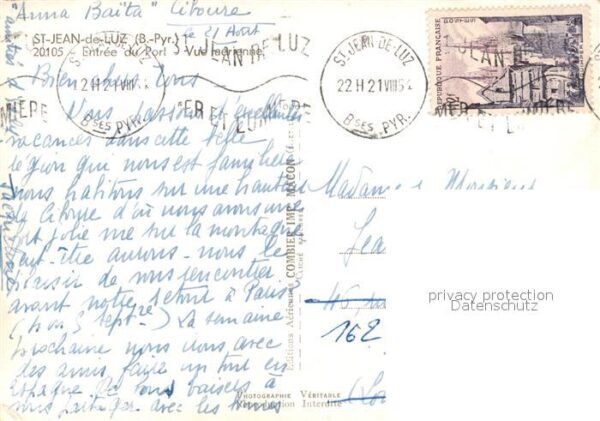 "Anna Baïta" Ciboure
le 21 Août
ST-JEAN-de-LUZ (B.-Pyr.)
20105 - Entrée du Port - Vue aérienne
ST-JEAN-DE-LUZ
22 H 21 VIII 54
BSES PYR.
ST-JEAN-DE-LUZ
MER ET LUMIERE
REPUBLIQUE FRANÇAISE
Bien chers Tous
Nous passons d'excellentes
vacances dans cette belle
région qui nous est familière
nous habitons sur une hauteur
de Ciboure d'où nous avons une
fort jolie vue sur la montagne
Peut-être aurons-nous le
plaisir de nous rencontrer
avant notre retour à Paris
La semaine
prochaine nous irons avec
des amis faire un tour en
Espagne
avec les
amitié
Madame et Monsieur
Jea
162
Editions Aériennes COMBIER IMP. MACON
PHOTOGRAPHIE VÉRITABLE
Reproduction Interdite
privacy protection
Datenschutz